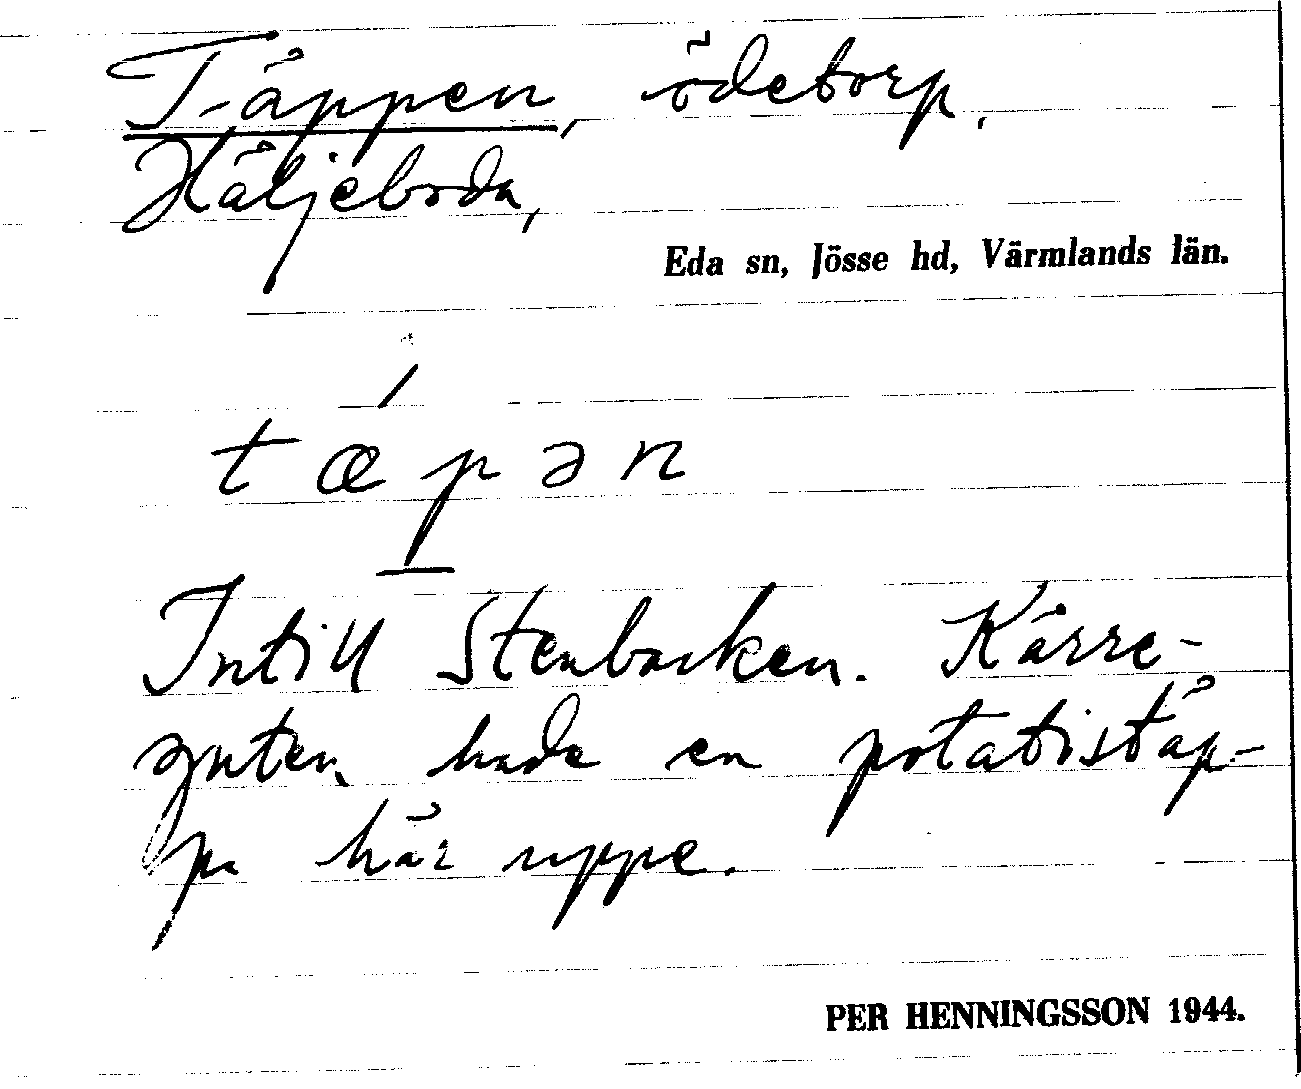 Täppen, ödetorp,
Häljeboda,
Eda sn, Jösse hd, Värmlands län.
tæ´pən
Intill Stenbacken. Kärre-
guten hade en potatistäp-
pa här uppe.
PER HENNINGSSON 1944.